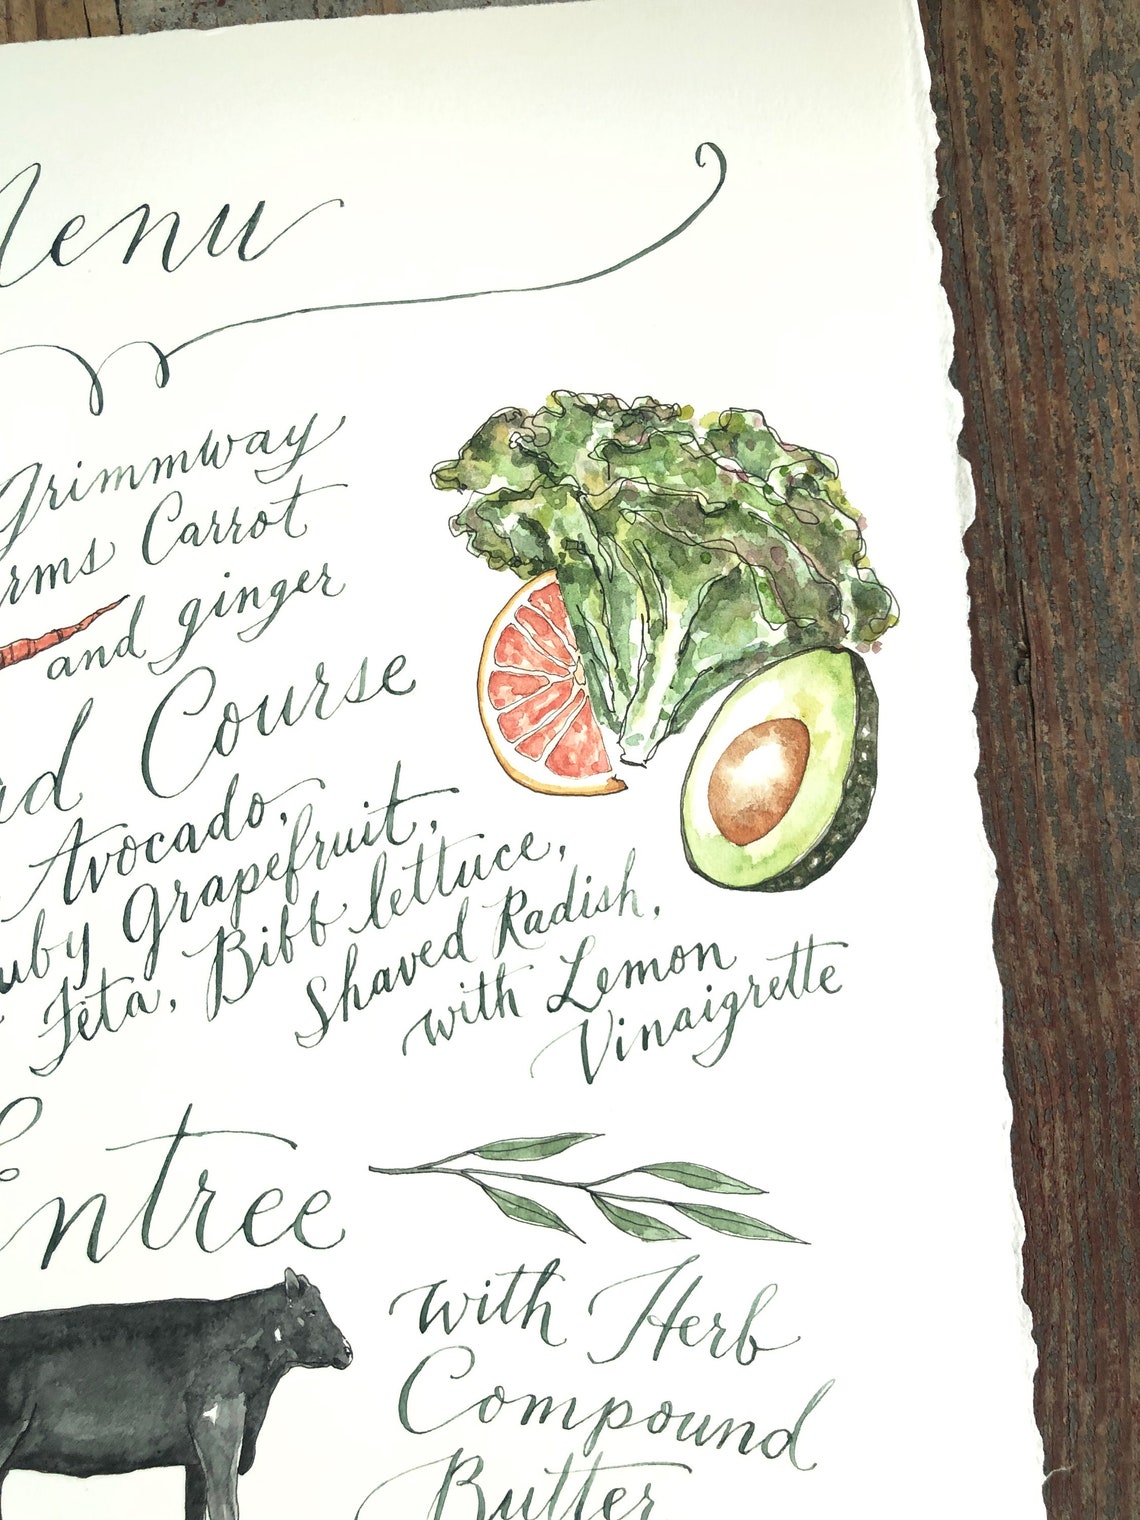 Menu
Grimmway
rms Carrot
and ginger
Course
Avocado,
uby Grapefruit,
Feta, Bibb lettuce,
Shaved Radish,
with Lemon
Vinaigrette
Entree
with Herb
Compound
Butter